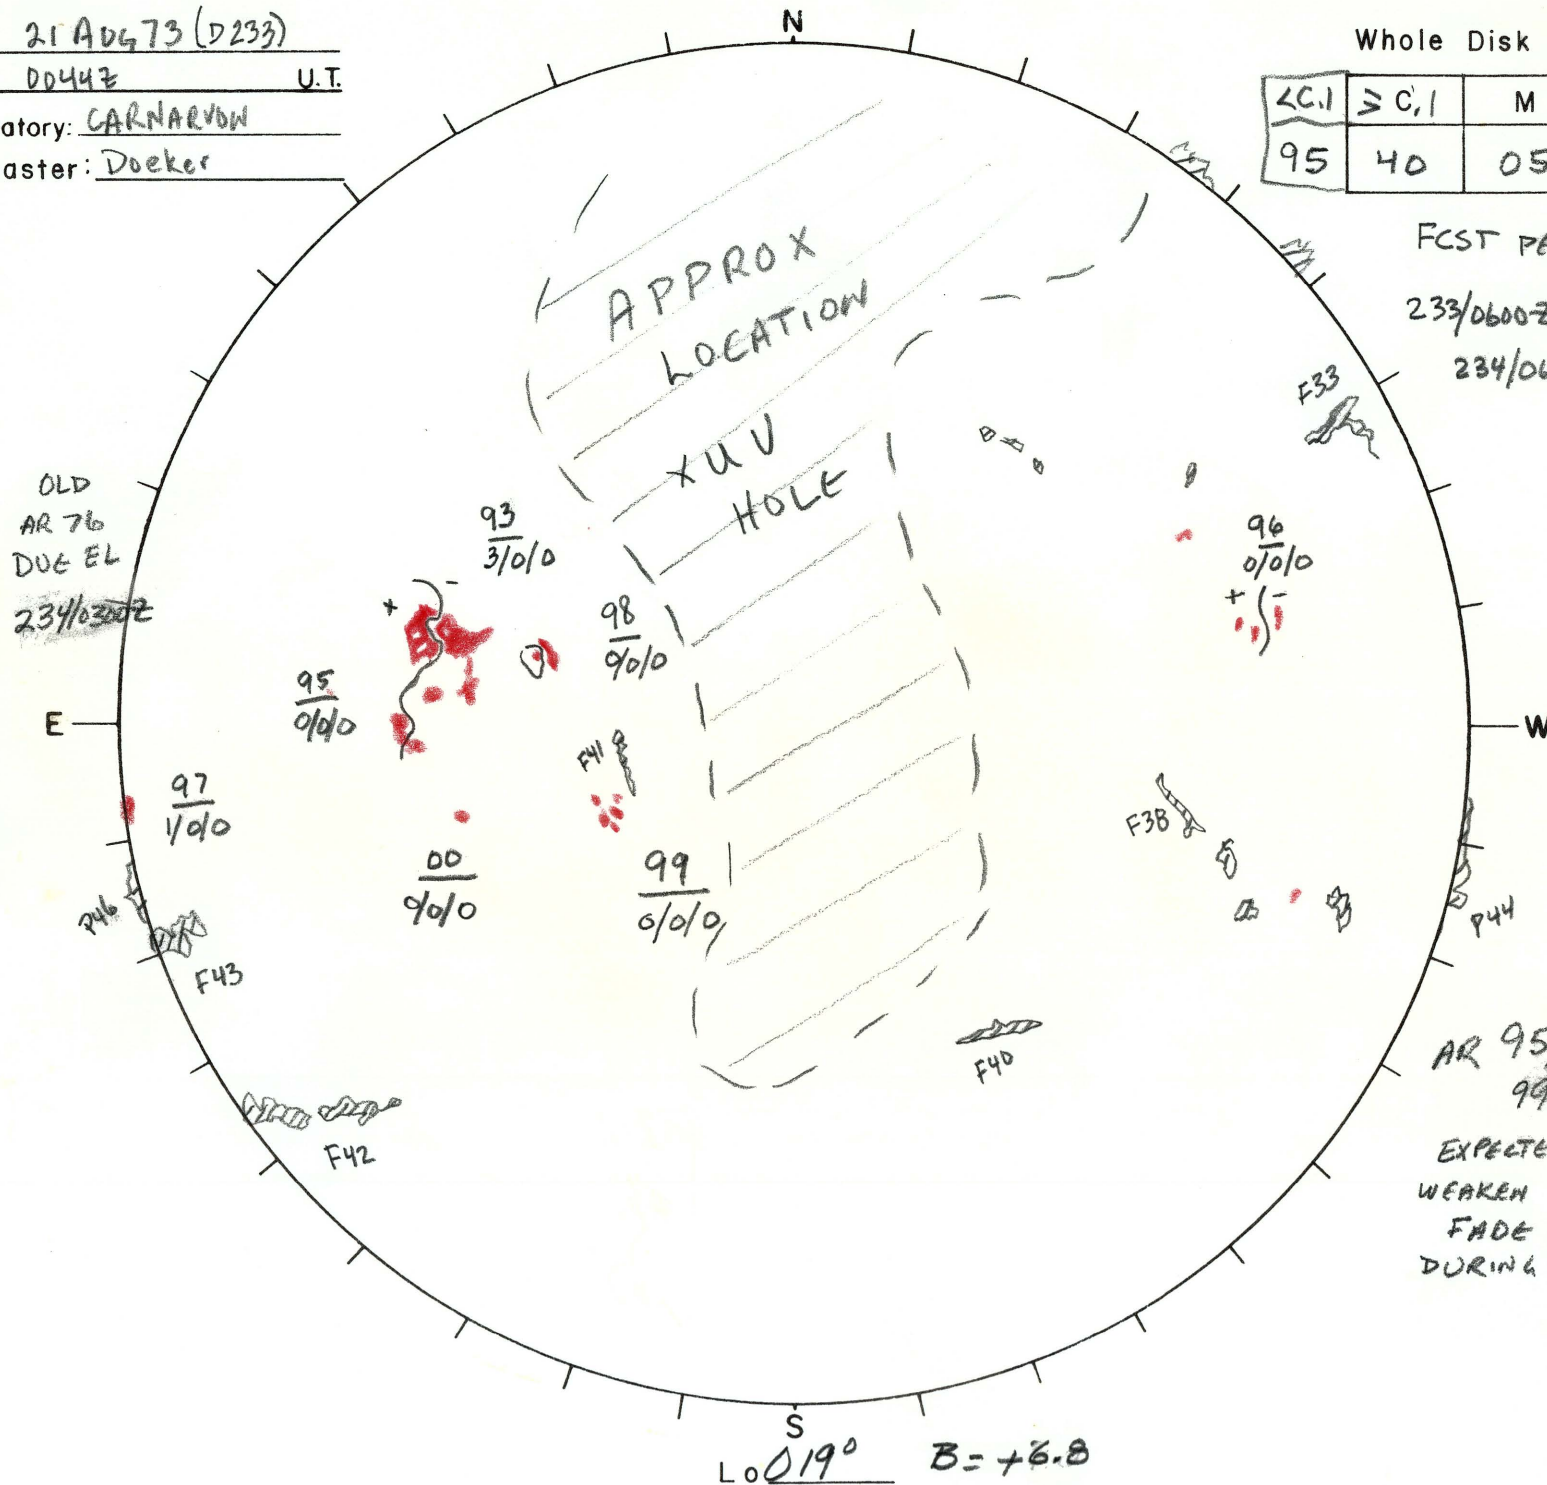 21 AUG 73 (D233)
0044Z U.T.
atory: CARNARVON
aster: Doeker
N
Whole Disk
<C.1 ≥ C.1 M
95 40 05
FCST PE
233/0600Z
234/06
APPROX
LOCATION
XUV
HOLE
F33
OLD
AR 76
DUE EL
234/0300Z
93
3/0/0
96
0/0/0
+ -
+ -
98
0/0/0
95
0/0/0
E
W
F41
97
1/0/0
F38
00
0/0/0
99
0/0/0
P46
F43
P44
F40
F42
AR 95,
99
EXPECTE
WEAKEN
FADE
DURING
S
Lo 019° B = +6.8